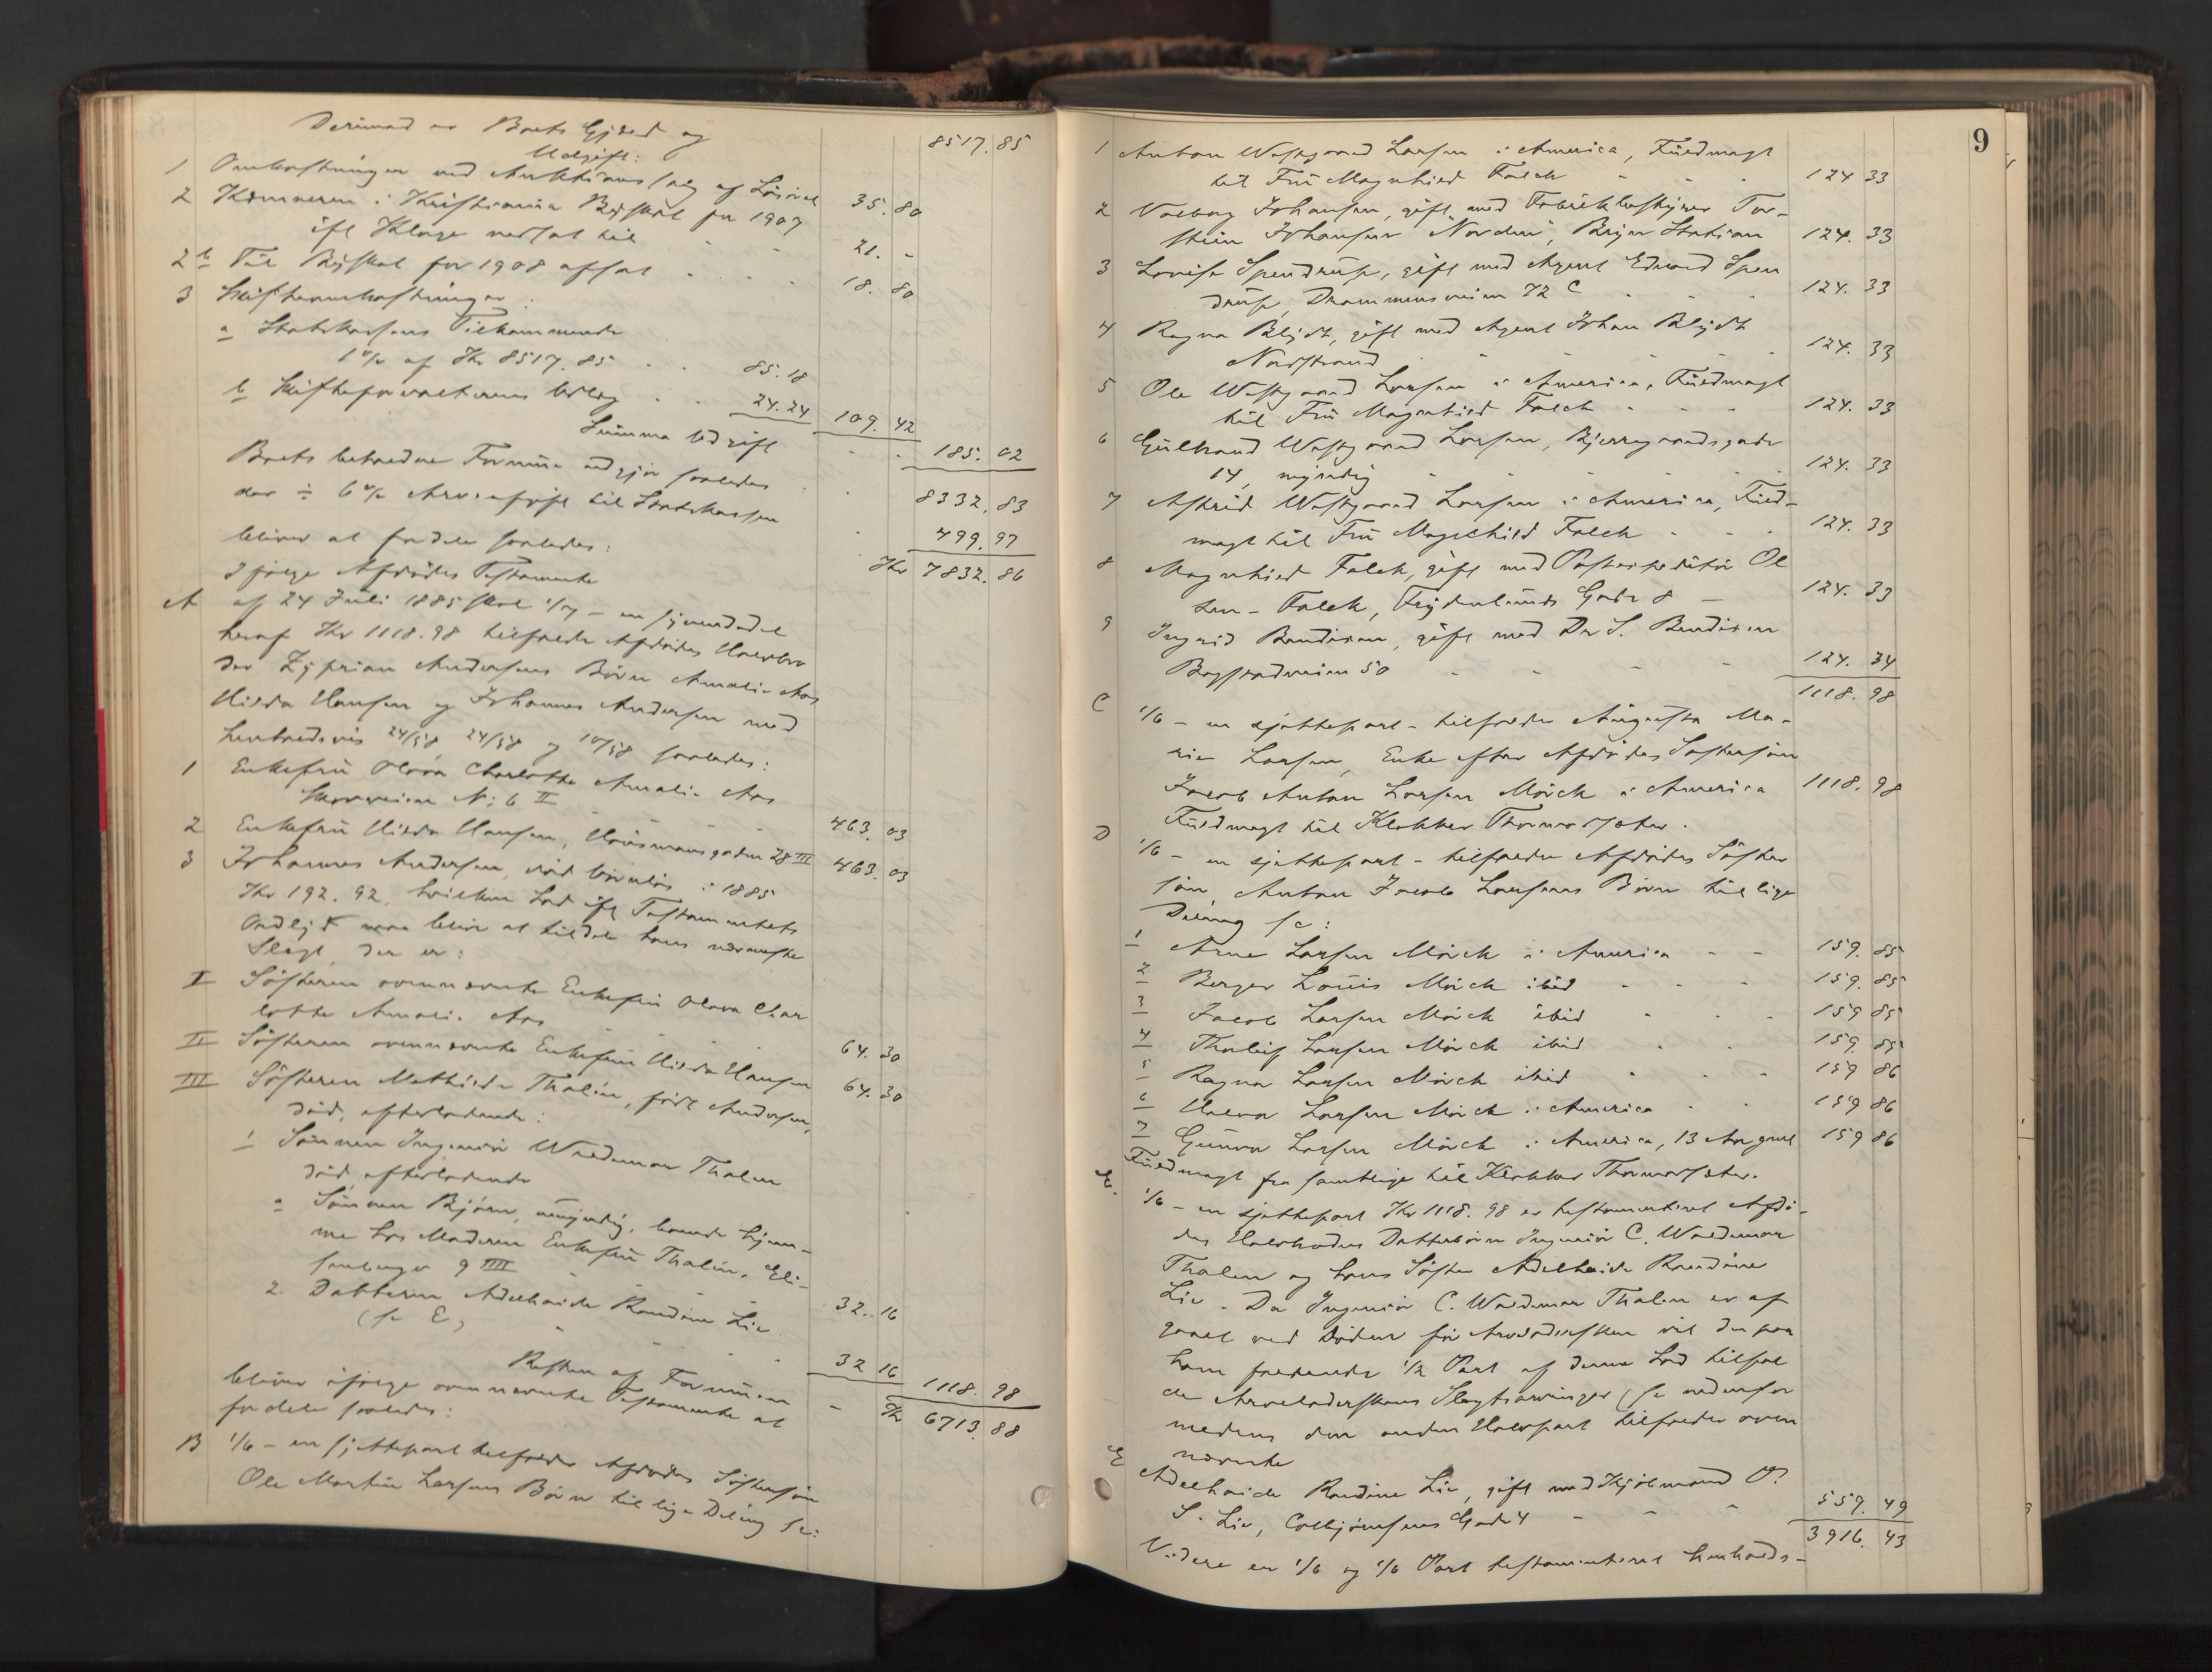 Derimod er Boets Gjeld og 8517.85
Udgift:
1 Omkostninger ved Auktionssalg af Lösöre 35.80
2 Kæmneren i Kristiania Byskat for 1907
ifl Klage nedsat til 21. -
2b Til Byskat for 1908 afsat 18.80
3 Skifteomkostninger:
a Statskassens Tilkommende
1% af Kr 8517.85 85.18
b Skifteforvalterens Udlæg 24.24 109.42
Summa Udgift 185.02
Boets beholdne Formue udgjør saaledes 8332.83
der ÷ 6% Arveafgift til Statskassen 499.97
bliver at fordele saaledes: Kr 7832.86
Ifølge Afdødes Testamente
A af 24 Juli 1885 skal 1/7 - en syvendedel
heraf Kr 1118.98 tilfalde Afdødes Halvbro
der Zyprian Andersens Børn Amalie Aas
Hilda Hansen og Johannes Andersen med
henholdsvis 24/58 24/58 og 10/58 saaledes:
1 Enkefru Olava Charlotte Amalie Aas
No 6 II 463.03
2 Enkefru Hilda Hansen, Hausmannsgaden 28 III 463.03
3 Johannes Andersen, död barnlös i 1885
Kr 192.92, hvilken Lod ifl Testamentets
Ordlyd maa blive at tildele hans nærmeste
Slægt, der er:
I Søsteren ovennævnte Enkefru Olava Char
lotte Amalie Aas 64.30
II Søsteren ovennævnte Enkefru Hilda Hansen 64.30
III Søsteren Mathilde Thalin, født Andersen,
död, efterladende:
1 Sønnen Ingeniör Waldemar Thalin
död, efterladende
a Sønnen Björn, umyndig, havende Hjem-
me hos Moderen Enkefru Thalin, Eli-
senberg 9 IIII 32.16
2. Datteren Adelheide Randine Lie
(se E) 32 16 1118.98
Resten af Formuen Kr 6713.88
bliver ifølge ovennævnte Testamente at
fordele saaledes:
B 1/6 - en sjettepart tilfalder Afdødes Søstersøn
Ole Martin Larsens Børn til lige Deling se:
9
1 Anton Westgaard Larsen i America, Fuldmagt
til Fru Magnhild Falck 124 33
2 Valborg Johansen, gift med Fabrikbestyrer Tor-
stein Johansen "Norden", Bryn Station 124.33
3 Lovise Spendrup, gift med Agent Edvard Spen
drup, Drammensveien 72 C 124.33
4 Ragna Blydt, gift med Agent Johan Blydt
Nordstrand 124.33
5 Ole Westgaard Larsen i America, Fuldmagt
til Fru Magnhild Falck 124.33
6 Gulbrand Westgaard Larsen, Bjerregaardsgade
14, myndig 124.33
7 Astrid Westgaard Larsen i America, Fuld-
magt til Fru Magnhild Falck 124.33
8 Magnhild Falck, gift med Postexpeditör Ol
sen-Falck, Frydenlunds Gade 8 124.33
9 Ingrid Bendixen, gift med Dr S. Bendixen
Bogstadveien 50 124.34
1118.98
C 1/6 - en sjettepart - tilfalder Augusta Ma-
rie Larsen, Enke efter Afdødes Søstersön
Jacob Anton Larsen Mörch i America 1118.98
Fuldmagt til Klokker Thormodsæter.
D 1/6 - en sjettepart - tilfalder Afdødes Söster
sön, Anton Jacob Larsens Børn til lige
Deling se:
1 Arne Larsen Mörck i America 159.85
2 Berger Louis Mörck ibid 159.85
3 Jacob Larsen Mörck ibid 159 85
4 Tholeif Larsen Mörck ibid 159.85
5 Ragna Larsen Mörck ibid 159 86
6 Halva Larsen Mörck i America 159 86
7 Gunva Larsen Mörck i America, 13 Aar gml 159 86
Fuldmagt fra samtlige til Klokker Thormodsæter.
E. 1/6 - en sjettepart Kr 1118.98 er testamenteret Afdö-
des Halvbroders Datterbørn Ingeniör C. Waldemar
Thalin og hans Söster Adelheide Randine
Lie. Da Ingeniör C. Waldemar Thalin er af
gaaet ved Döden før Arveladersken vil den paa
ham faldende 1/2 Part af denne Lod tilfal
de Arveladerskens Slægtsarvinger (se nedenfor
medens den anden Halvpart tilfalder oven
nævnte
E Adelheide Randine Lie, gift med Kjöbmand O.
S. Lie, Colbjörnsens Gade 4 559.49
3916.43
Videre er 1/6 og 1/6 Part testamenteret henholds-